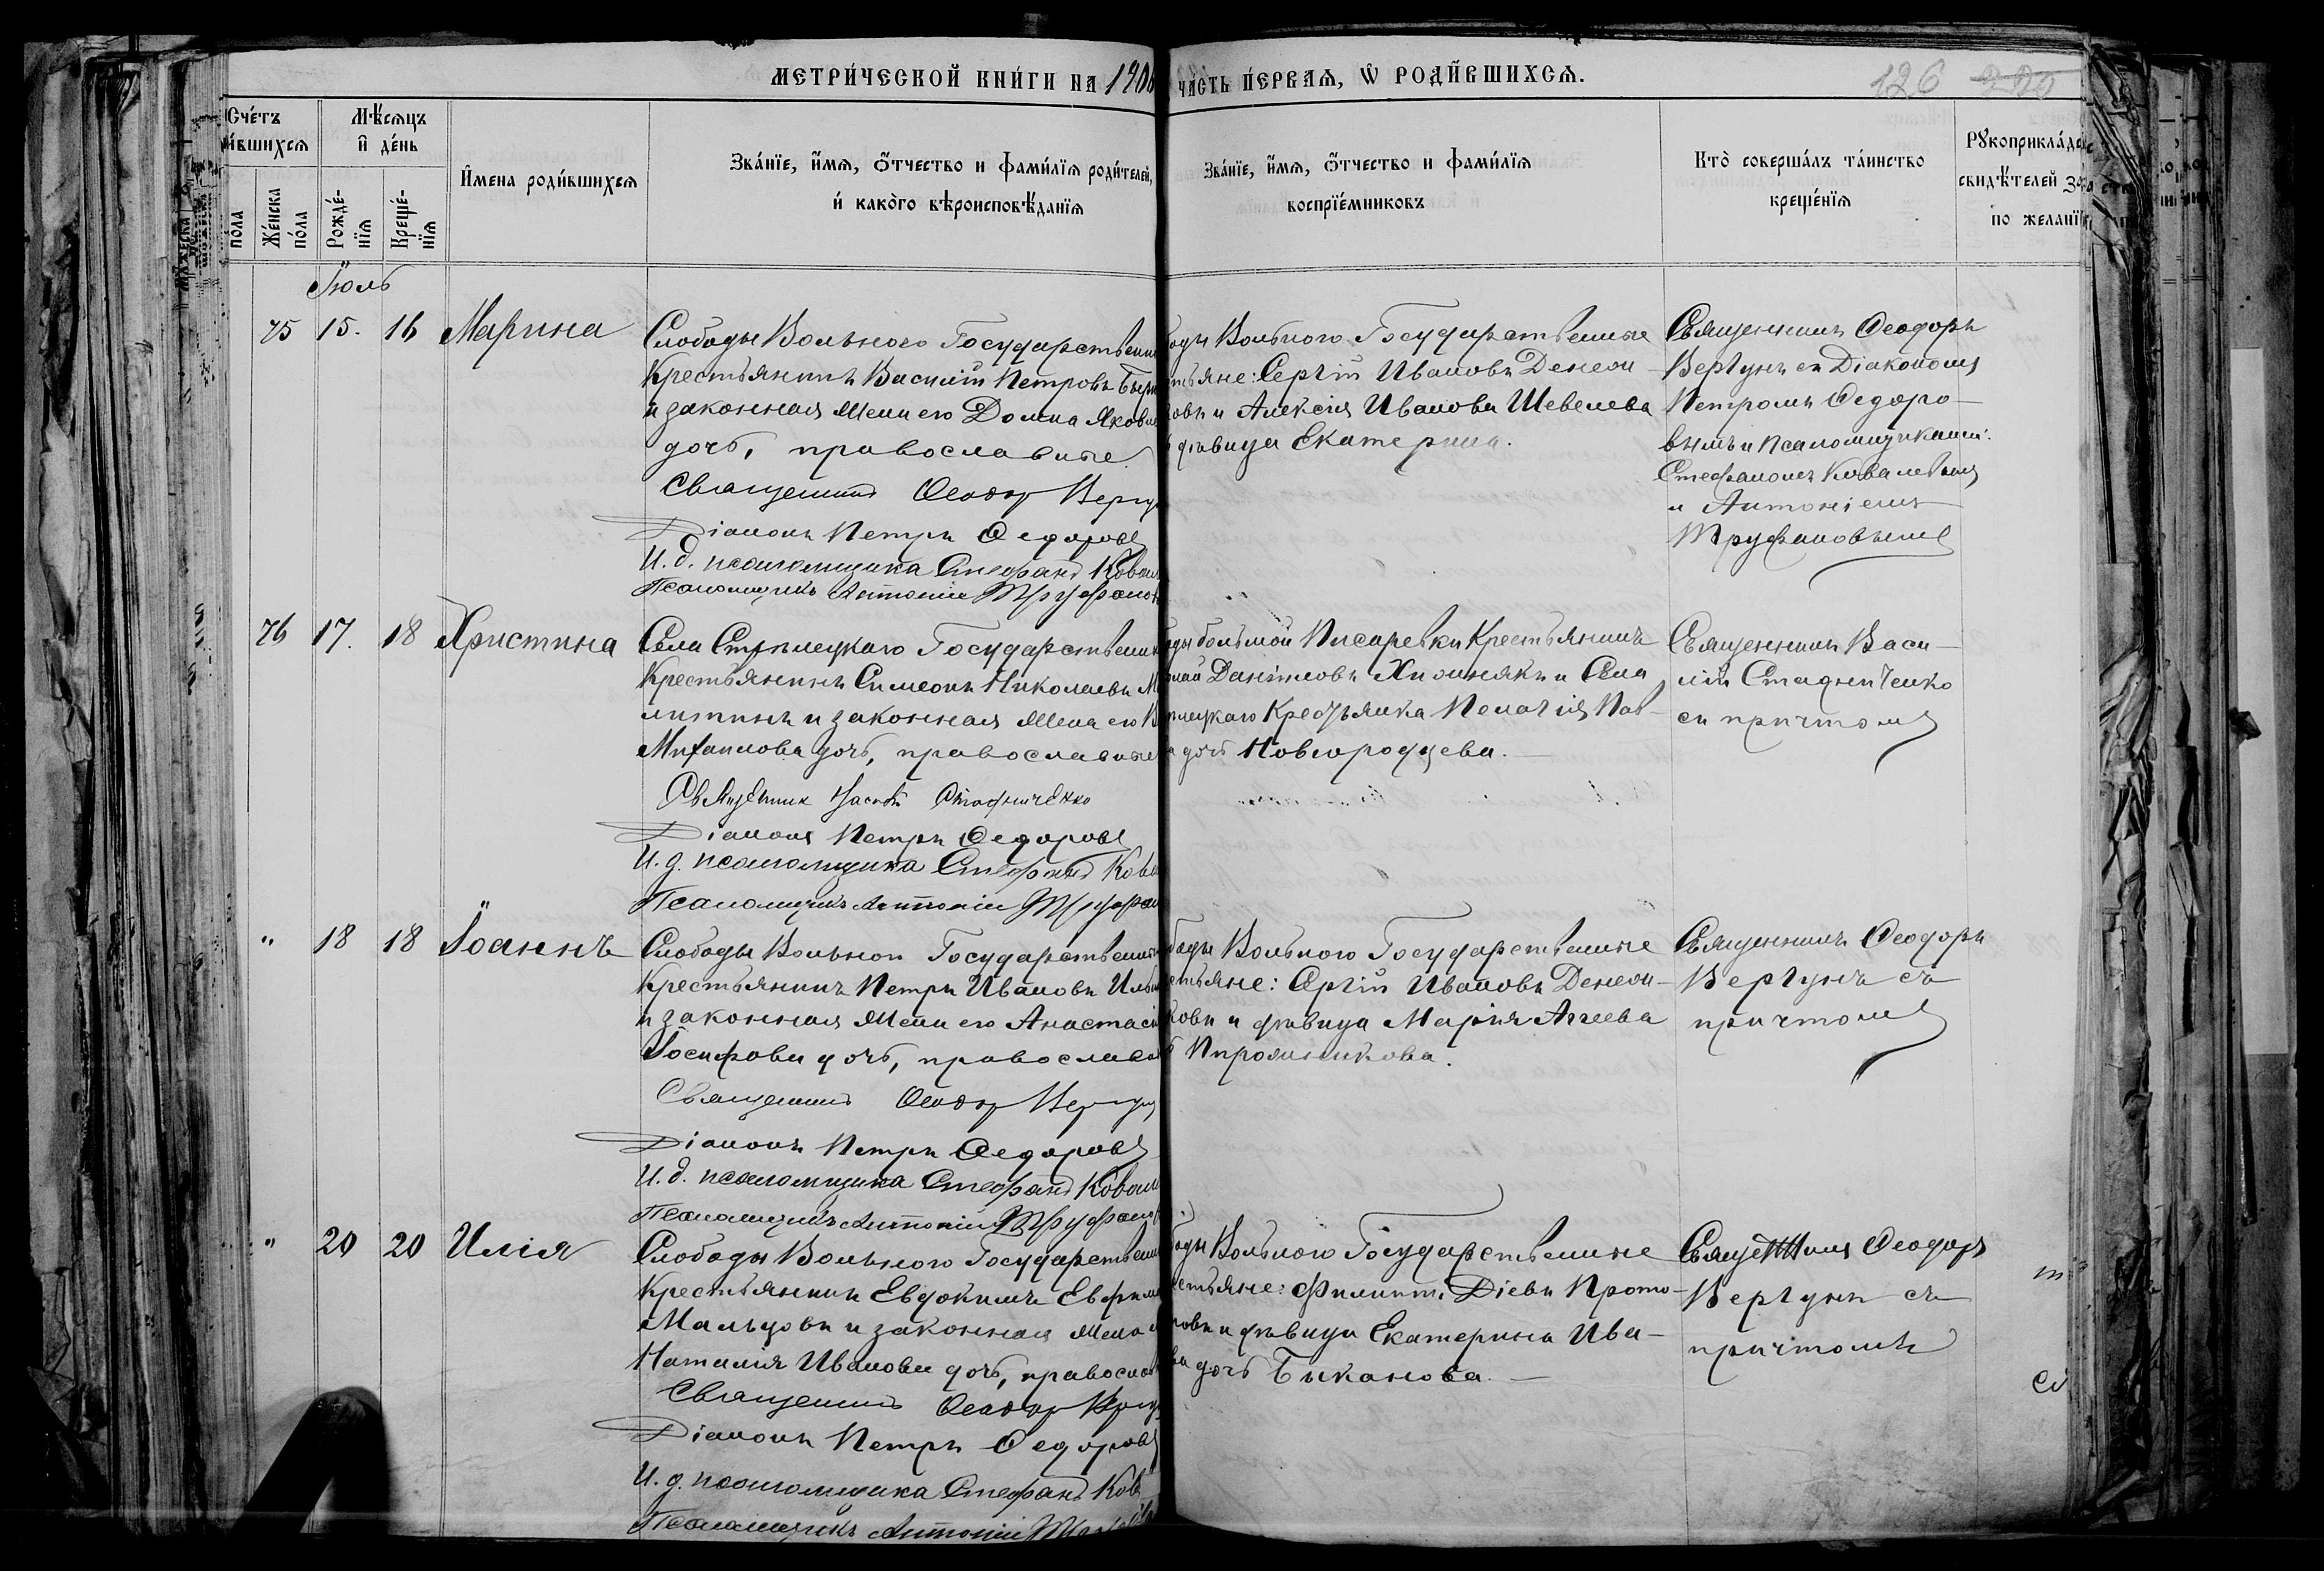 МЕТРИ́ЧЕСКОЙ КНИ́ГИ НА 1900
ЧАСТЬ ПЕ́РВАѦ, Ѡ РОДИ́ВШИХСѦ.
126
Сче́тъ
Мѣ́сѧцъ
и҆ де́нь
И҆мена роди́вшихсѧ
Зва́нїе, и҆́мѧ, ѻ҆́тчество и фами́лїѧ роди́телей,
и҆ како́гѡ вѣроисповѣ́данїѧ
Жéнска
пóла
Рождé-
нїѧ
Крещé-
нїѧ
Зва́нїе, и҆́мѧ, ѻ҆́тчество и фами́лїѧ
воспрїе́мниковъ
Кто̀ соверша́лъ та́инство
креще́нїѧ
свидѣ́телей
по желанї
Іюль
75 15. 16 Марина
Слободы Вольного Государственн
Крестьянинъ Василій Петровъ
и законная жена его Домна Яковл
дочь, православные
Священникъ Феодор Вергун
Діаконъ Петръ Федоровъ
И. д. псаломщика Стефанъ Ковал
Псаломщикъ Антоній Труфанов
оды Вольного Государственные
тьяне: Сергій Ивановъ Денеж-
ковъ и Алексія Иванова Шевелева
дѣвица Екатерина.
Священникъ Феодоръ
Вергунъ съ Діакономъ
Петромъ Федоро-
вымъ и псаломщиками:
Стефаномъ
и Антоніемъ
Труфановымъ
76 17. 18 Христина
Села Стрѣлецкаго Государственн
Крестьянинъ Симеонъ Николаевъ М
литинъ и законная жена его В
Михаилова дочь, православные
Священник Василій Стадниченко
Діаконъ Петръ Федоровъ
И. д. псаломщика Стефанъ Кова
Псаломщикъ Антоній Труфан
оды Большой Писаревки Крестьянинъ
Даніиловъ Хижнякъ и Села
лецкаго Крестьянка Пелагія Пав-
дочь Новгородцева.
Священникъ Васи-
лій Стадниченко
съ причтомъ
" 18 18 Іоаннъ
Слободы Вольной Государственн
Крестьянинъ Петръ Ивановъ Иль
и законная жена его Анастасі
Іосифова дочь, православ
Священникъ Феодор Вергун
Діаконъ Петръ Федоровъ
И. д. псаломщика Стефанъ Ковал
Псаломщикъ Антоній Труфанов
боды Вольного Государственные
стьяне: Сергій Ивановъ Денеж-
ковъ и дѣвица Марія Агеева
Пирожникова.
Священникъ Феодоръ
Вергунъ съ
причтомъ
" 20 20 Илія
Слободы Вольного Государственн
Крестьянинъ Евдокимъ Ефим
Мальцовъ и законная жена
Наталія Иванова дочь, правосла
Священникъ Феодор Вергун
Діаконъ Петръ Федоровъ
И. д. псаломщика Стефанъ Ков
Псаломщикъ Антоній
боды Вольного Государственные
стьяне: Филиппъ Діевъ Прото-
повъ и дѣвица Екатерина Ива-
ва дочь Быканова.
Священникъ Феодоръ
Вергунъ съ
причтомъ